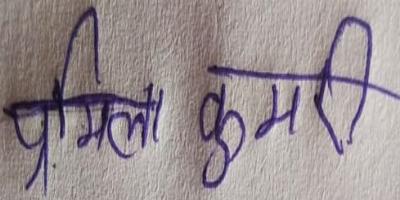 प्रमिला कुमरी